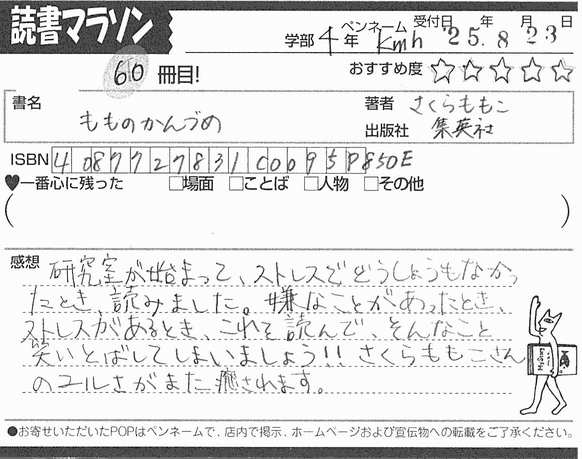 読書マラソン
学部 4年 ペンネーム kmh 受付日 '25年 8月 23日
60冊目!
おすすめ度 ☆☆☆☆☆
書名 もものかんづめ
著者 さくらももこ
出版社 集英社
ISBN 4 08 7 7 2 7 8 3 1 C 0 0 9 5 P 8 5 0 E
♥一番心に残った □場面 □ことば □人物 □その他
( )
感想 研究室が始まって、ストレスでどうしようもなかっ
たとき、読みました。嫌なことがあったとき、
ストレスがあるとき、これを読んで、そんなこと
笑いとばしてしまいましょう!! さくらももこさん
のユルさがまた癒されます。
●お寄せいただいたPOPはペンネームで、店内で掲示、ホームページおよび宣伝物への転載をご了承ください。